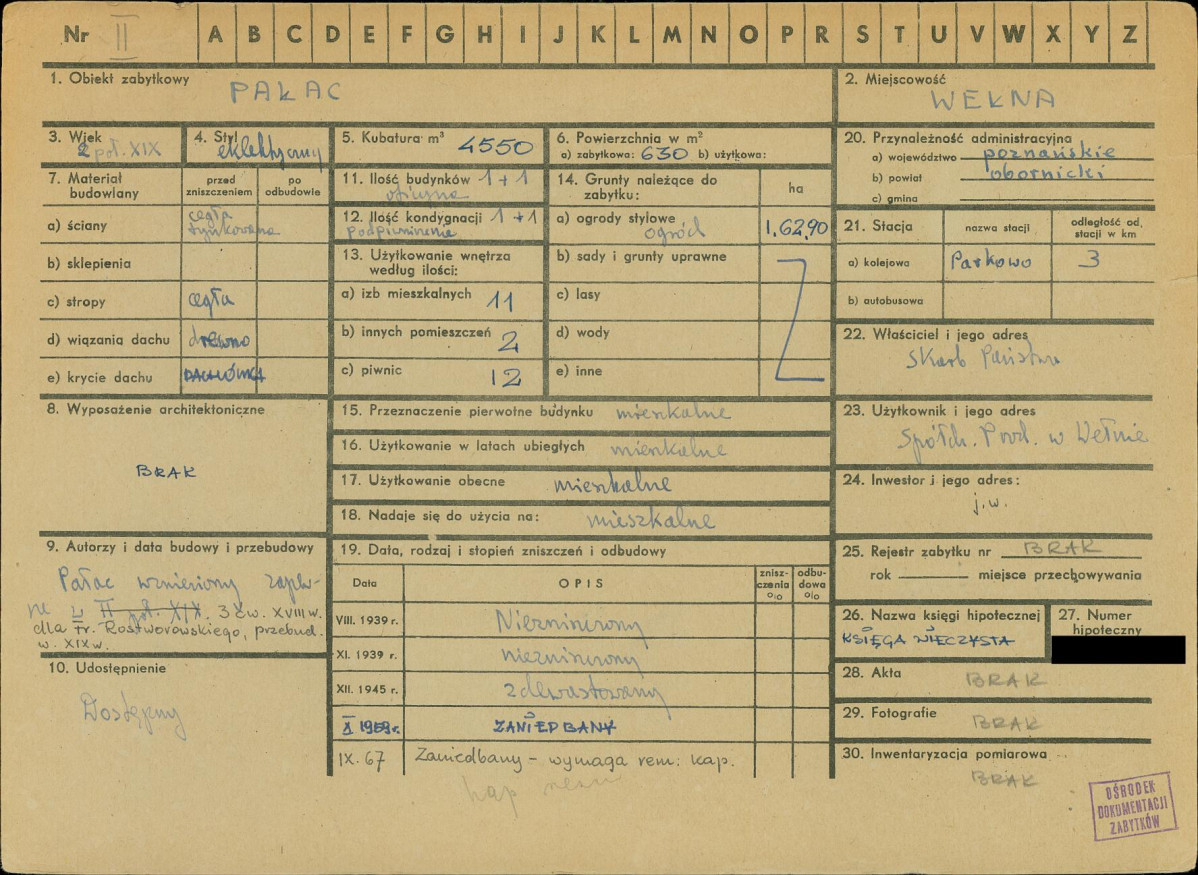 Nr II A B C D E F G H I J K L M N O P R S T U V W X Y Z
1. Obiekt zabytkowy
PAŁAC
2. Miejscowość
WEŁNA
3. Wiek
2 poł. XIX
4. Styl
eklektyczny
5. Kubatura m³
4550
6. Powierzchnia w m²
a) zabytkowa: 630 b) użytkowa:
20. Przynależność administracyjna
a) województwo poznańskie
b) powiat obornicki
c) gmina
7. Materiał budowlany
przed zniszczeniem
po odbudowie
a) ściany
cegła
tynkowana
b) sklepienia
c) stropy cegła
d) wiązania dachu drewno
e) krycie dachu DACHÓWKA
11. Ilość budynków 1+1
oficyna
12. Ilość kondygnacji 1+1
podpiwniczenie
13. Użytkowanie wnętrza
według ilości:
a) izb mieszkalnych 11
b) innych pomieszczeń 2
c) piwnic 12
14. Grunty należące do
zabytku:
ha
a) ogrody stylowe
ogród
1,62,90
b) sady i grunty uprawne
c) lasy
d) wody
e) inne
21. Stacja
nazwa stacji
odległość od
stacji w km
a) kolejowa Parkowo 3
b) autobusowa
22. Właściciel i jego adres
Skarb Państwa
8. Wyposażenie architektoniczne
BRAK
15. Przeznaczenie pierwotne budynku mieszkalne
16. Użytkowanie w latach ubiegłych mieszkalne
17. Użytkowanie obecne mieszkalne
18. Nadaje się do użycia na: mieszkalne
23. Użytkownik i jego adres
Spółdz. Prod. w Wełnie
24. Inwestor i jego adres:
j.w.
9. Autorzy i data budowy i przebudowy
Pałac wzniesiony zapew-
ne w II poł. XIX. 3 ćw. XVIII w.
dla Fr. Rostworowskiego, przebud.
w. XIX w.
10. Udostępnienie
Dostępny
19. Data, rodzaj i stopień zniszczeń i odbudowy
Data
OPIS
znisz-
czenia
%
odbu-
dowa
%
VIII. 1939 r. Niezniszczony
XI. 1939 r. niezniszczony
XII. 1945 r. zdewastowany
X 1959 r. ZANIEDBANY
IX. 67 Zaniedbany - wymaga rem. kap.
kap
25. Rejestr zabytku nr BRAK
rok miejsce przechowywania
26. Nazwa księgi hipotecznej
KSIĘGA WIECZYSTA
27. Numer
hipoteczny
28. Akta
BRAK
29. Fotografie
BRAK
30. Inwentaryzacja pomiarowa
BRAK
OŚRODEK
DOKUMENTACJI
ZABYTKÓW